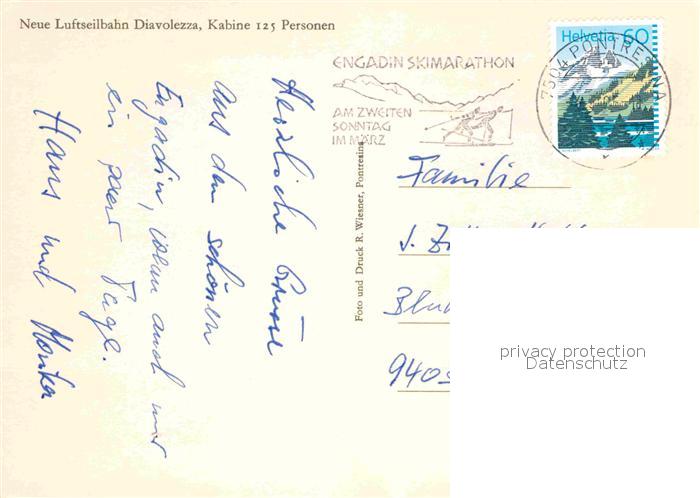 Neue Luftseilbahn Diavolezza, Kabine 125 Personen
Helvetia 60
7504 PONTRESINA
ENGADIN SKIMARATHON
AM ZWEITEN
SONNTAG
IM MÄRZ
Herzliche Grüsse
aus dem schönen
Engadin, wenn auch nur
ein paar Tage.
Hans und Monika
Foto und Druck R. Wiesner, Pontresina
Familie
J.
940
privacy protection
Datenschutz